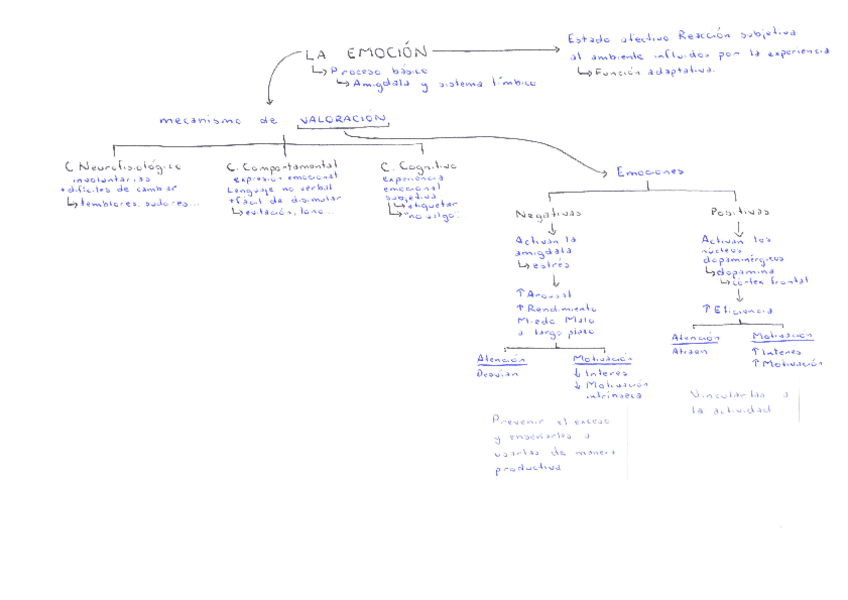 LA EMOCIÓN
↳ Proceso básico
↳ Amígdala y sistema límbico
Estado afectivo Reacción subjetiva
al ambiente influidos por la experiencia
↳ Función adaptativa.
mecanismo de VALORACIÓN
C. Neurofisiológico
involuntarias
+ difíciles de cambiar
↳ temblores, sudores...
C. Comportamental
expresión emocional
Lenguaje no verbal
+ fácil de disimular
↳ evitación, tono...
C. Cognitivo
experiencia
emocional
subjetiva
↳ etiquetar
↳ "no valgo"...
Emociones
Negativas
Activan la
amígdala
↳ estrés
↑ Arousal
↑ Rendimiento
Miedo Malo
a largo plazo
Atención
Desvían
Motivación
↓ Interes
↓ Motivación
intrínseca
Prevenir el exceso
y enseñarles a
usarlas de manera
productiva
Positivas
Activan los
núcleos
dopaminérgicos
↳ dopamina
↳ cortex frontal
↑ Eficiencia
Atención
Atraen
Motivación
↑ Interes
↑ Motivación
Vincularlas a
la actividad